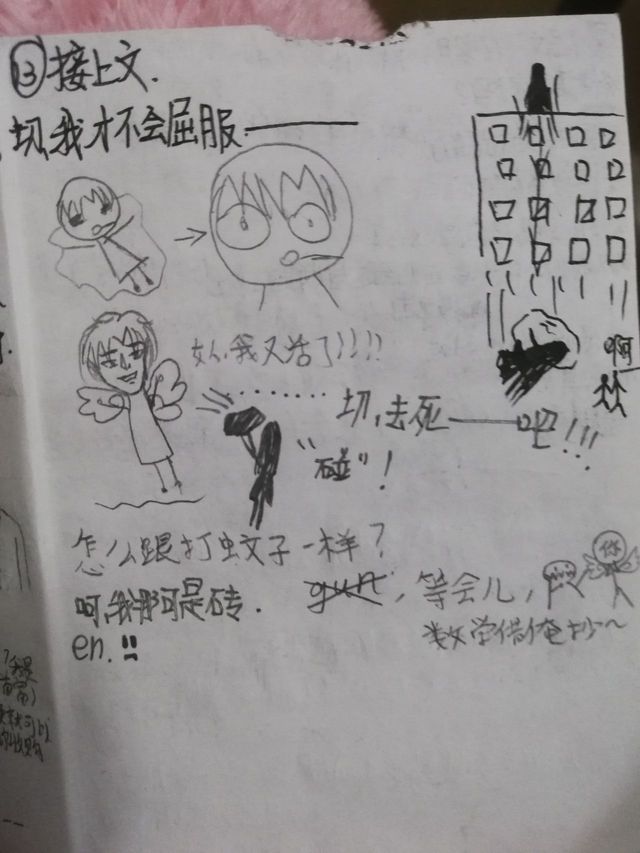 ③接上文.
切,我才不会屈服——
女人,我又活了!!!!
啊
切,去死——吧!!!
"碰"!
怎么跟打蚊子一样?
呵,我那可是砖.
等会儿,
你
数学借俺抄~
en.